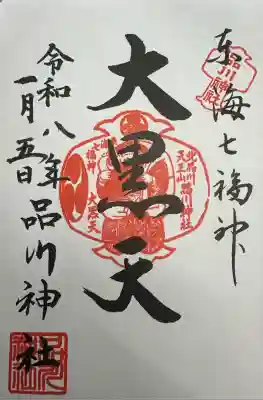 東海七福神
品川神社
大黒天
北品川
天王山
品川神社
七福神
大黒天
令和八年
一月五日
品川神社